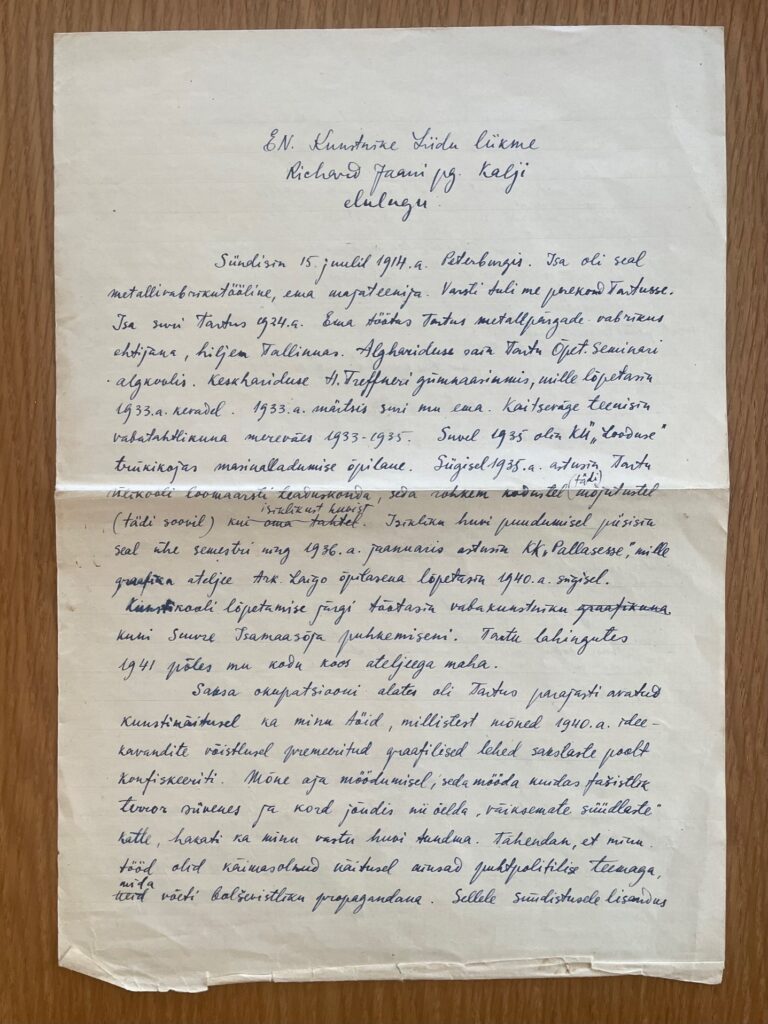 EN. Kunstnike Liidu liikme
Richard Jaani pg. Kalji
elulugu.
Sündisin 15. juulil 1914.a. Peterburgis. Isa oli seal
metallivabrikutööline, ema majateenija. Varsti tuli me perekond Tartusse.
Isa suri Tartus 1924.a. Ema töötas Tartus metallpärgade vabrikus
ehtijana, hiljem Tallinnas. Alghariduse sain Tartu Õpet. Seminari
algkoolis. Keskhariduse H. Treffneri gümnaasiumis, mille lõpetasin
1933.a. kevadel. 1933.a. märtsis suri mu ema. Kaitseväge teenisin
vabatahtlikuna mereväes 1933-1935. Suvel 1935 olin KÜ „Looduse"
trükikojas masinalladumise õpilane. Sügisel 1935.a. astusin Tartu
(tädi)
ülikooli loomaarsti teaduskonda, seda rohkem kodustel mõjutustel
isiklikust huvist
(tädi soovil) kui oma tahtel. Isikliku huvi puudumisel püsisin
seal ühe semestri ning 1936.a. jaanuaris astusin KK „Pallasesse", mille
graafika ateljee Ark. Laigo õpilasena lõpetasin 1940.a. sügisel.
Kunstikooli lõpetamise järgi töötasin vabakunstniku graafikuna
kuni Suure Isamaasõja puhkemiseni. Tartu lahingutes
1941 põles mu kodu koos ateljeega maha.
Saksa okupatsiooni alates oli Tartus parajasti avatud
kunstinäitusel ka minu töid, millistest mõned 1940.a. idee-
kavandite võistlusel premeeritud graafilised lehed sakslaste poolt
konfiskeeriti. Mõne aja möödumisel, seda mööda kuidas fašistlik
terror süvenes ja kord jõudis nii öelda „väiksemate süüdlaste"
kätte, hakati ka minu vastu huvi tundma. Tähendan, et minu
tööd olid käimasolnud näitusel ainsad puhtpoliitilise teemaga,
mida
neid võeti bolševistliku propagandana. Sellele süüdistusele lisandus